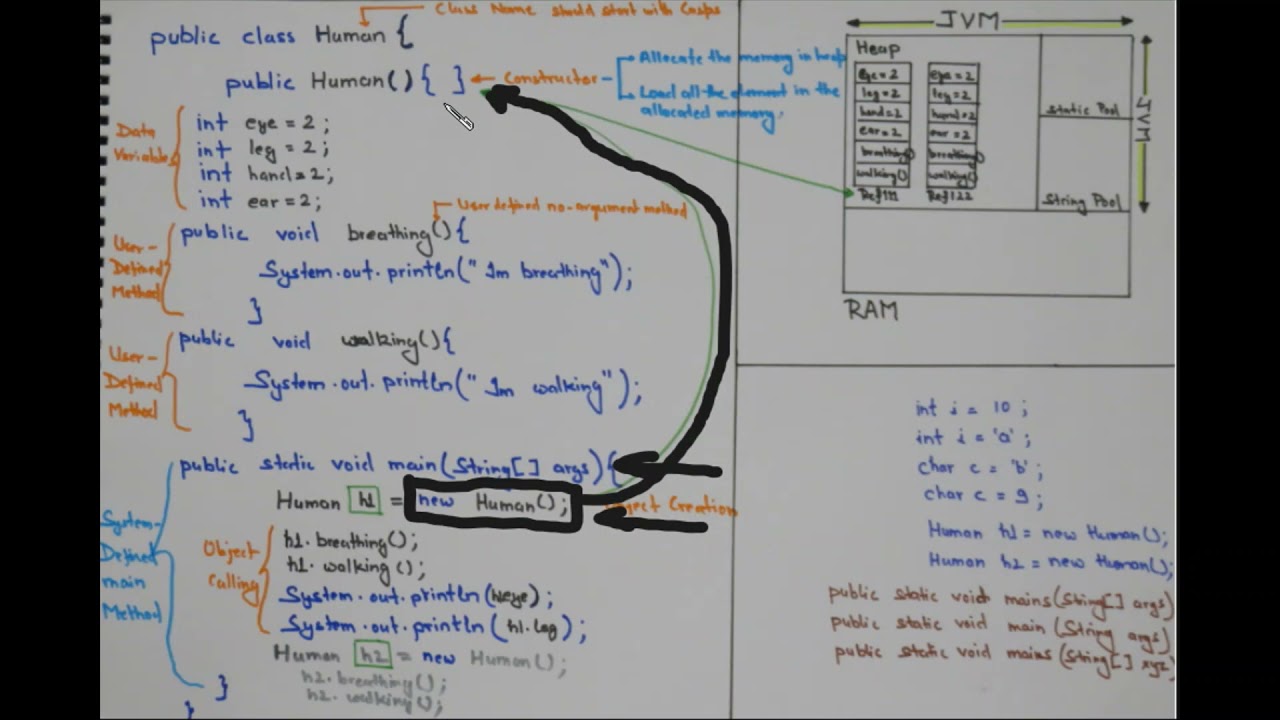 Class Name should start with Casps
public class Human {
public Human() { }
Constructor
Allocate the memory in heap
Load all the element in the
allocated memory;
Data
Variables
int eye = 2 ;
int leg = 2 ;
int hand = 2;
int ear = 2;
User defined no-argument method
User-
Defined
Method
public void breathing() {
System.out.println(" Im breathing");
}
User-
Defined
Method
public void walking() {
System.out.println(" Im walking");
}
public static void main(String[] args) {
Human h1 = new Human();
Object Creation
System-
Defined
main
Method
Object
Calling
h1.breathing();
h1.walking();
System.out.println(h1.eye);
System.out.println(h1.leg);
Human h2 = new Human();
h2.breathing();
h2.walking();
}
}
JVM
JVM
Heap
eye = 2
leg = 2
hand = 2
ear = 2
breathing()
walking()
Ref111
eye = 2
leg = 2
hand = 2
ear = 2
breathing()
walking()
Ref122
Static Pool
String Pool
RAM
int i = 10 ;
int i = 'a' ;
char c = 'b' ;
char c = 9 ;
Human h1 = new Human();
Human h2 = new Human();
public static void mains(String[] args)
public static void main (String args)
public static void mains (String[] xyz)